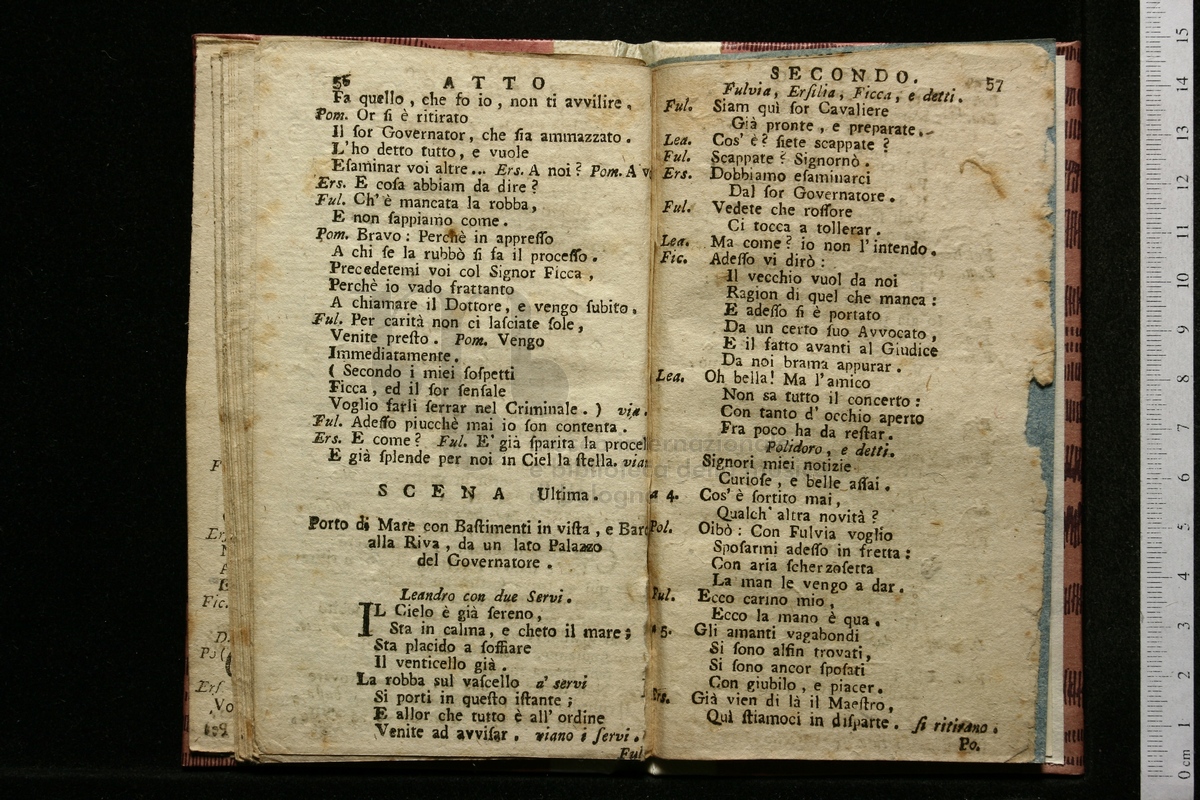 56 ATTO
Fa quello, che fo io, non ti avvilire.
Pom. Or ſi è ritirato
Il ſor Governator, che ſia ammazzato.
L'ho detto tutto, e vuole
Eſaminar voi altre... Erſ. A noi? Pom. A v
Erſ. E coſa abbiam da dire?
Ful. Ch'è mancata la robba,
E non ſappiamo come.
Pom. Bravo: Perchè in appreſſo
A chi ſe la rubbò ſi fa il proceſſo.
Precedetemi voi col Signor Ficca,
Perchè io vado frattanto
A chiamare il Dottore, e vengo ſubito.
Ful. Per carità non ci laſciate ſole,
Venite preſto. Pom. Vengo
Immediatamente.
( Secondo i miei ſoſpetti
Ficca, ed il ſor ſenſale
Voglio farli ſerrar nel Criminale. ) via.
Ful. Adeſſo piucchè mai io ſon contenta.
Erſ. E come? Ful. E' già ſparita la procel
E già ſplende per noi in Ciel la ſtella. vian
SCENA Ultima.
Porto di Mare con Baſtimenti in viſta, e Barc
alla Riva, da un lato Palazzo
del Governatore.
Leandro con due Servi.
IL Cielo è già ſereno,
Sta in calma, e cheto il mare;
Sta placido a ſoffiare
Il venticello già.
La robba ſul vaſcello a' ſervi
Si porti in queſto iſtante;
E allor che tutto è all' ordine
Venite ad avviſar. viano i ſervi.
Ful
SECONDO. 57
Fulvia, Erſilia, Ficca, e detti.
Ful. Siam quì ſor Cavaliere
Già pronte, e preparate.
Lea. Cos' è? ſiete ſcappate?
Ful. Scappate? Signornò.
Erſ. Dobbiamo eſaminarci
Dal ſor Governatore.
Ful. Vedete che roſſore
Ci tocca a tollerar.
Lea. Ma come? io non l'intendo.
Fic. Adeſſo vi dirò:
Il vecchio vuol da noi
Ragion di quel che manca:
E adeſſo ſi è portato
Da un certo ſuo Avvocato,
E il fatto avanti al Giudice
Da noi brama appurar.
Lea. Oh bella! Ma l'amico
Non sa tutto il concerto:
Con tanto d' occhio aperto
Fra poco ha da reſtar.
Polidoro, e detti.
Signori miei notizie
Curioſe, e belle aſſai.
a 4. Cos' è ſortito mai,
Qualch' altra novità?
Pol. Oibò: Con Fulvia voglio
Spoſarmi adeſſo in fretta:
Con aria ſcherzoſetta
La man le vengo a dar.
Ful. Ecco carino mio,
Ecco la mano è qua.
a 5. Gli amanti vagabondi
Si ſono alfin trovati,
Si ſono ancor ſpoſati
Con giubilo, e piacer.
Erſ. Già vien di là il Maeſtro,
Quì ſtiamoci in diſparte. ſi ritirano.
Po.